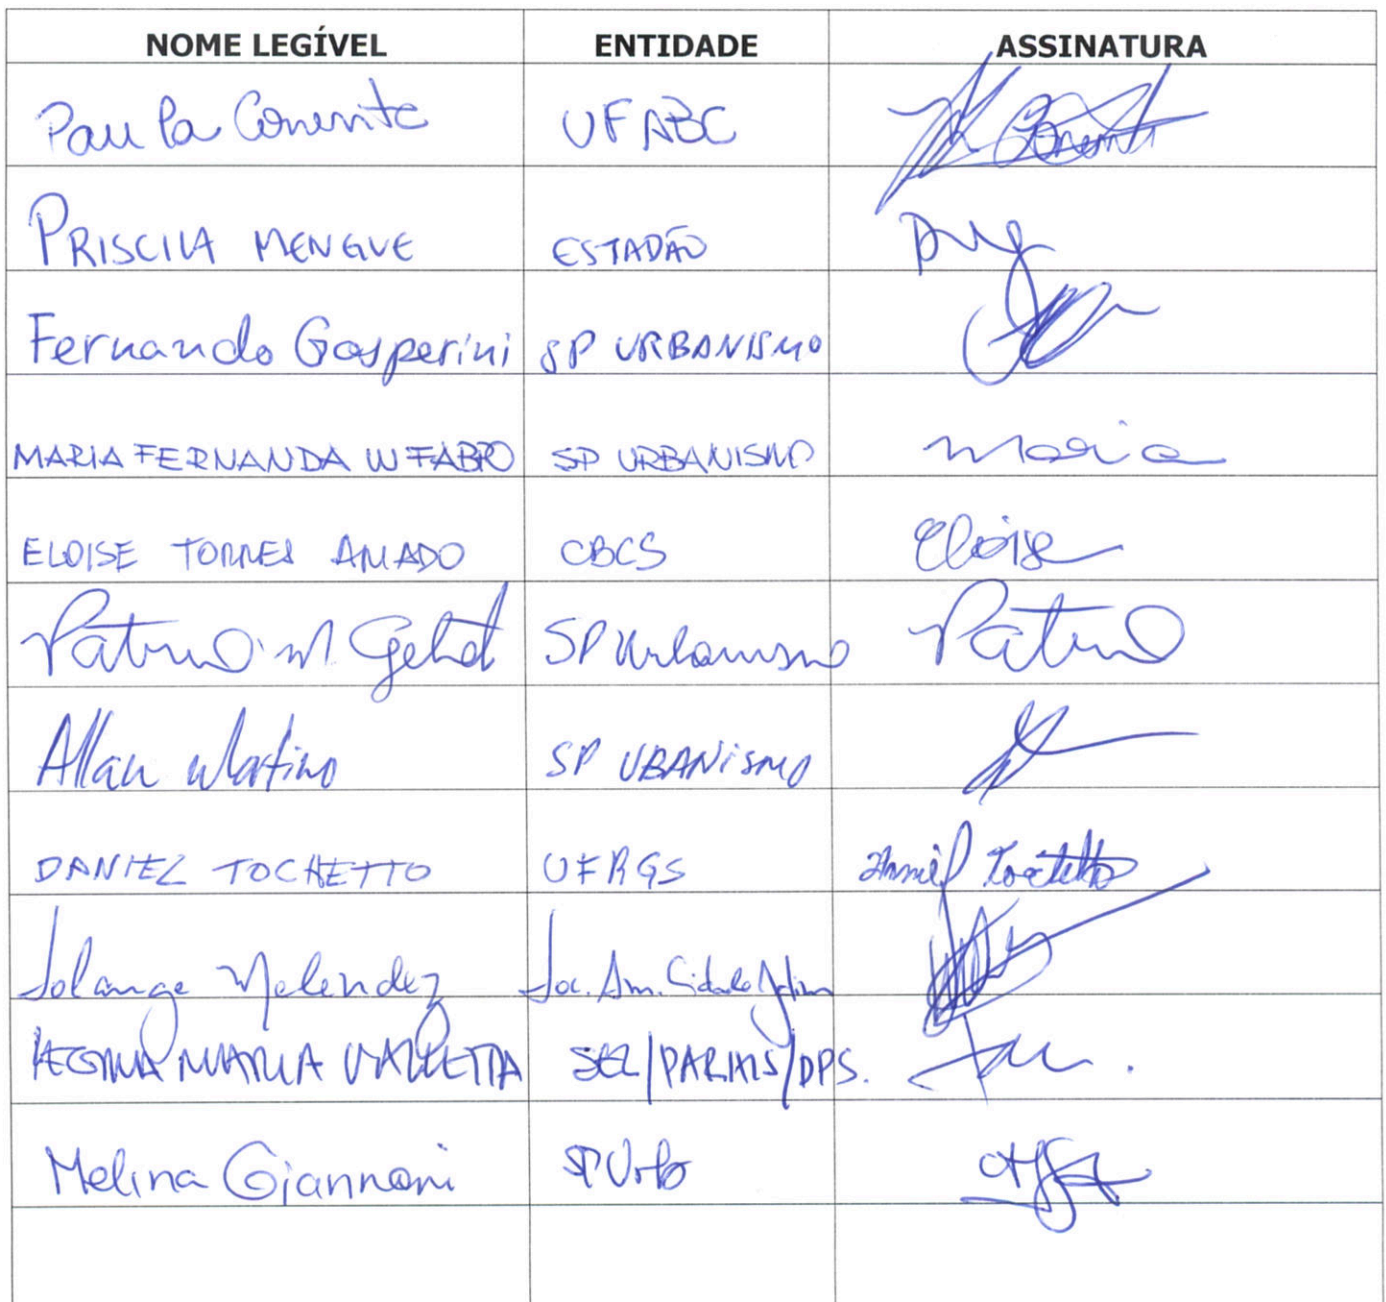 NOME LEGÍVEL ENTIDADE ASSINATURA
Paula UFABC
PRISCILA MENGUE ESTADÃO
Fernando Gasperini SP URBANISMO
MARIA FERNANDA W FABRO SP URBANISMO Maria
ELOISE TORRES AMADO CBCS Eloise
M. SP Urbanismo
Allan Martino SP UBANISMO
DANIEL TOCHETTO UFRGS Daniel Tochetto
Solange Melendez Soc. Am. Cidade Jdim
REGINA MARIA SEL/PARHIS/DPS.
Melina Giannoni SP Urb